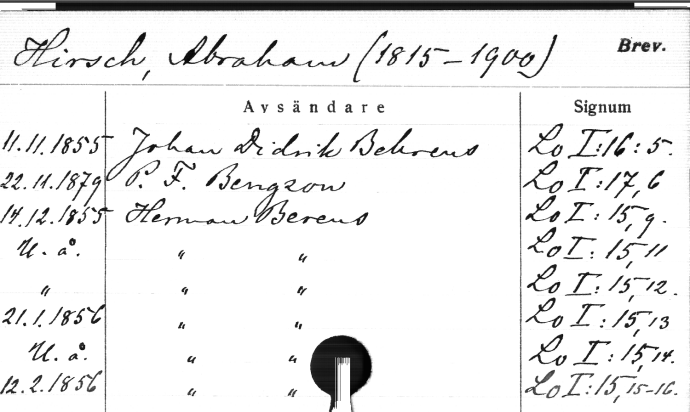 Hirsch, Abraham (1815-1900) Brev.
Avsändare Signum
11.11.1855 Johan Didrik Behrens Lo I:16:5.
22.11.1879 P. F. Bengzon Lo I:17,6
14.12.1855 Herman Berens Lo I:15,9.
U. å. " " Lo I:15,11
" " " Lo I:15,12.
21.1.1856 " " Lo I:15,13
U. å. " " Lo I:15,14.
12.2.1856 " " Lo I:15,15-16.